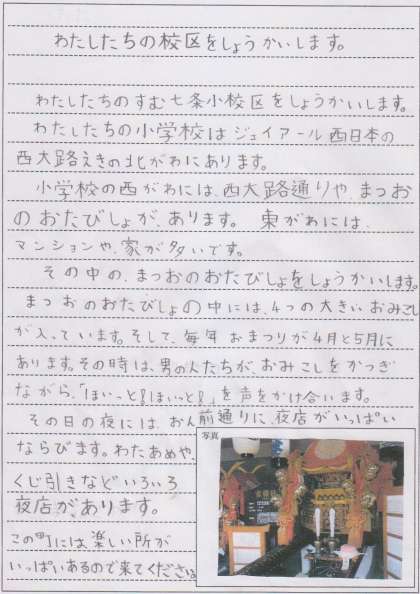 わたしたちの校区をしょうかいします。
わたしたちのすむ七条小校区をしょうかいします。
わたしたちの小学校はジェイアール西日本の
西大路えきの北がわにあります。
小学校の西がわには、西大路通りや、まつお
のおたびしょが、あります。東がわには、
マンションや、家が多いです。
その中の、まつおのおたびしょをしょうかいします。
まつおのおたびしょの中には、4つの大きいおみこし
が入っています。そして、毎年おまつりが4月と5月に
あります。その時は、男の人たちが、おみこしをかつぎ
ながら、「ほいっと!ほいっと!」を声をかけ合います。
その日の夜には、おん前通りに、夜店がいっぱい
ならびます。わたあめや、
くじ引きなどいろいろ
夜店があります。
この町には楽しい所が
いっぱいあるので来てくださ
写真